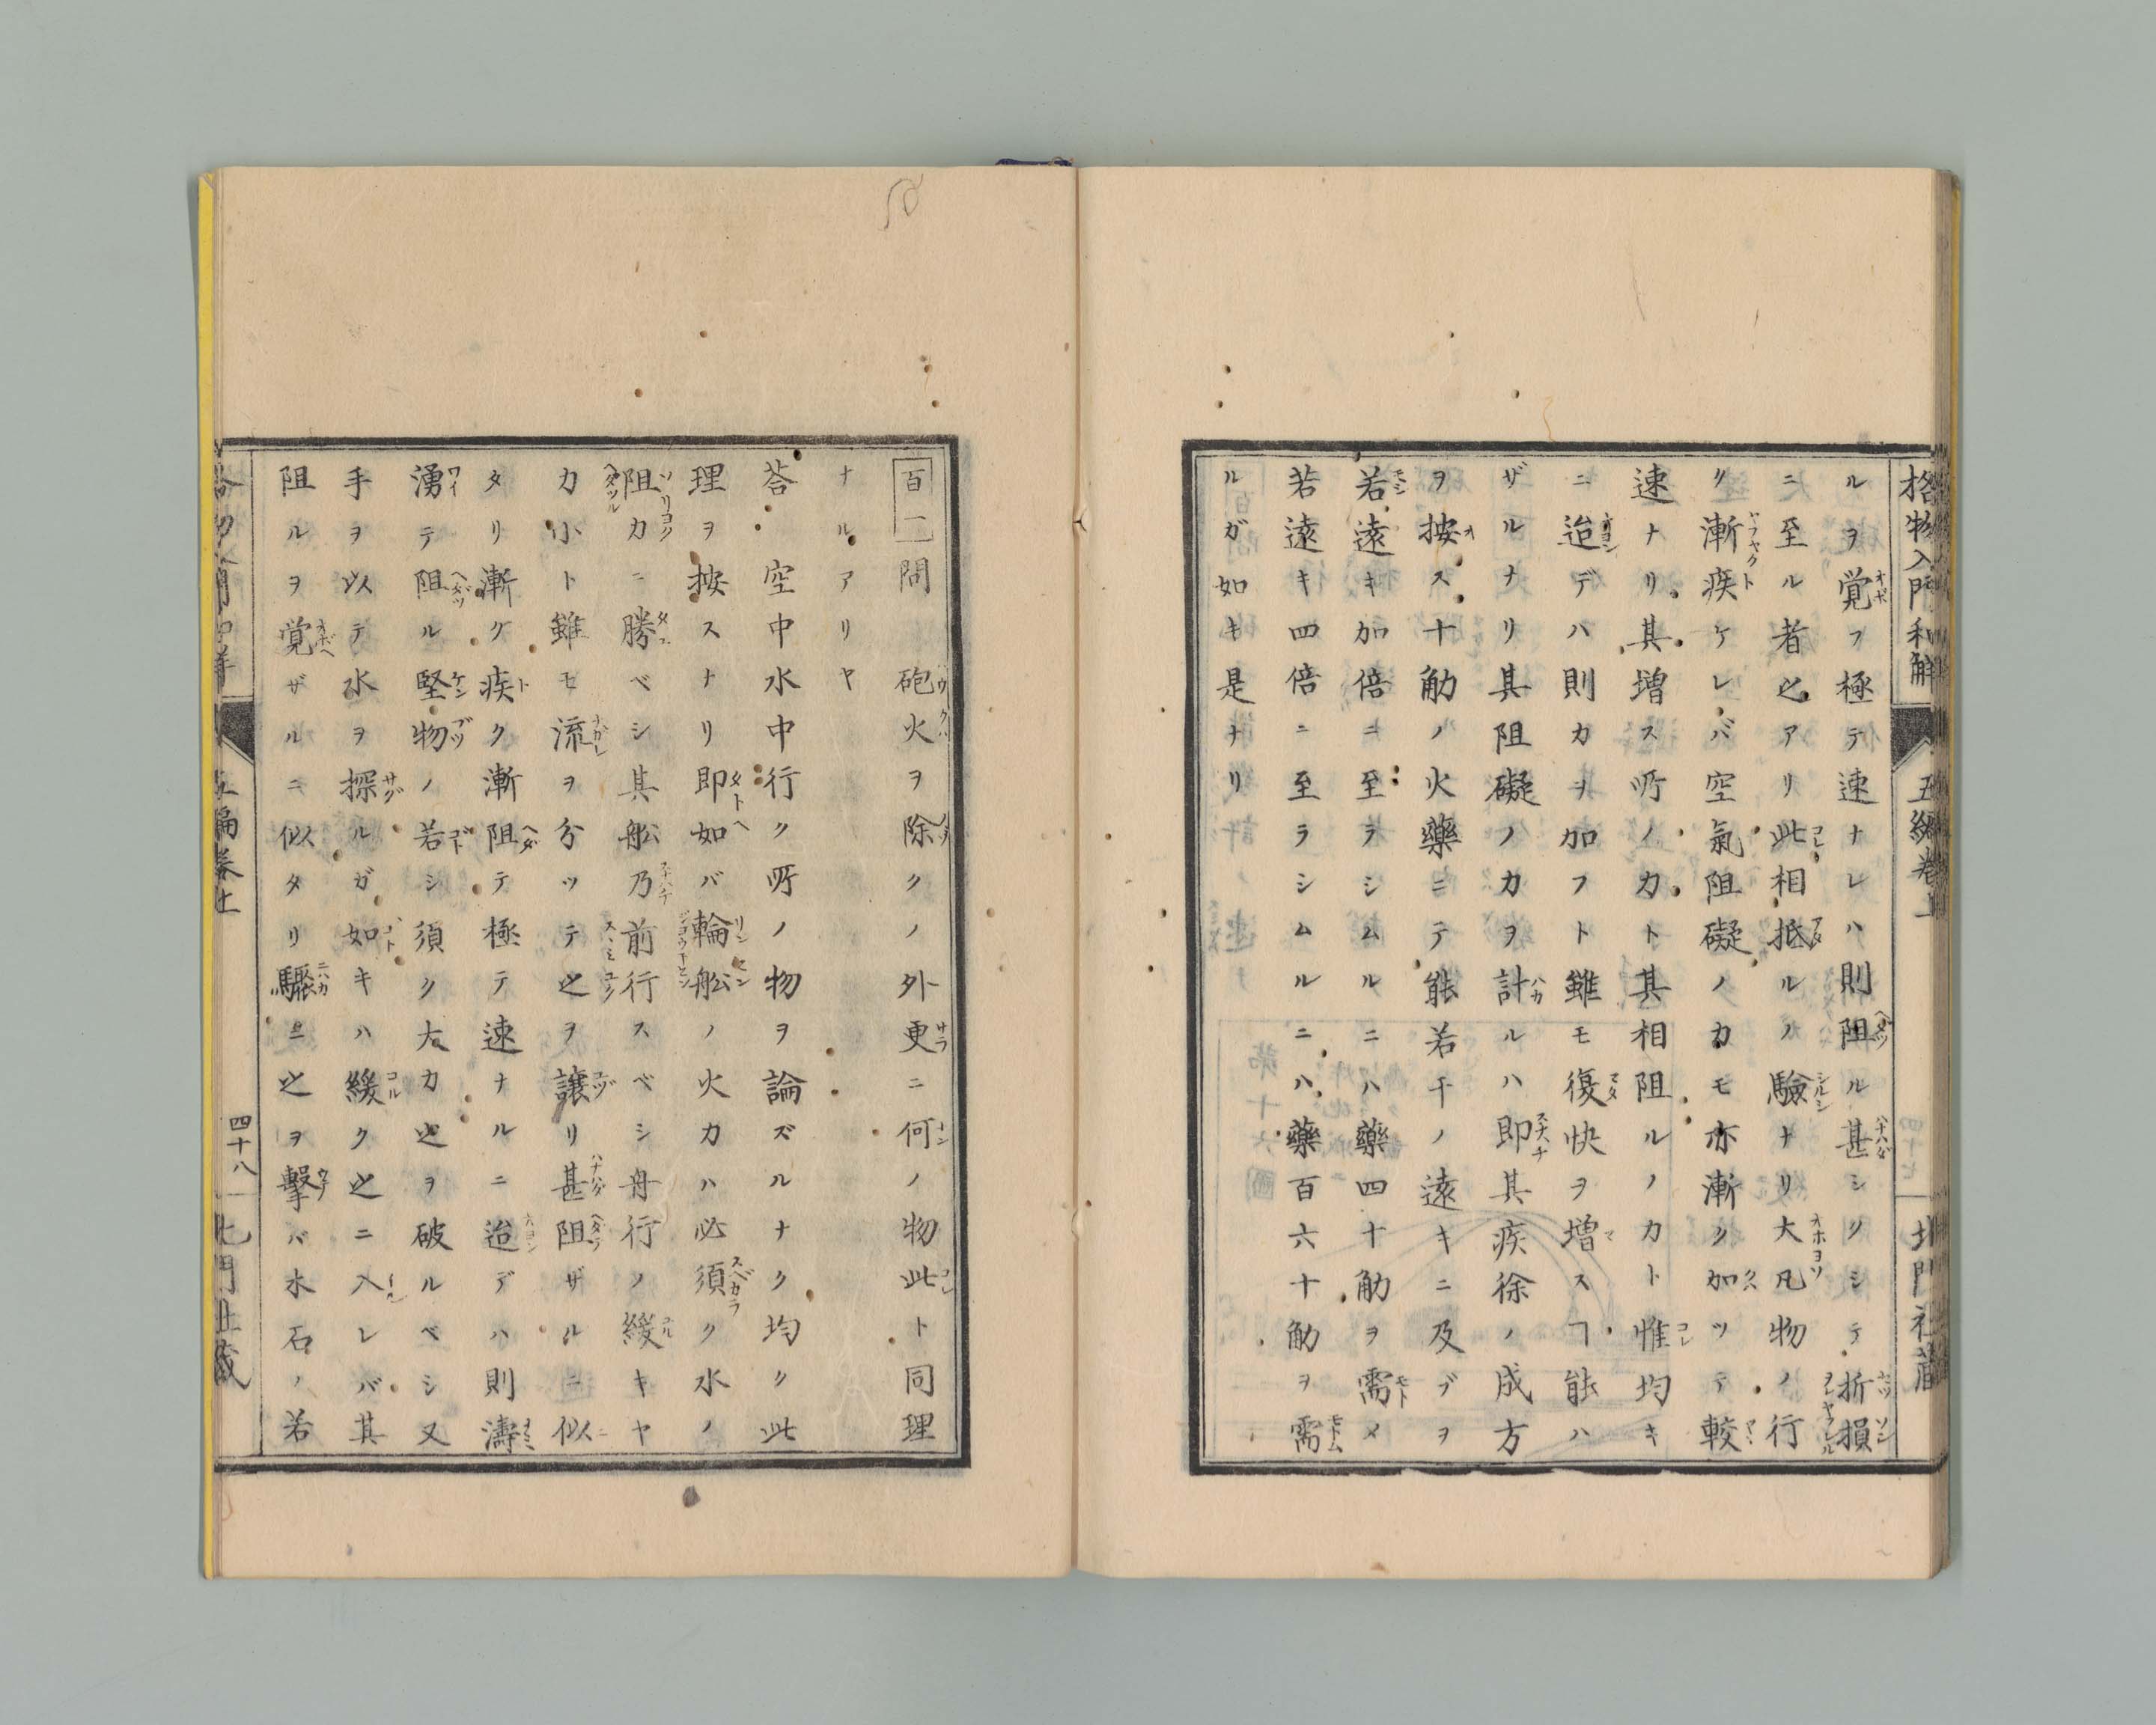 格物入門和解 五編卷上 北門社藏
ルヲ覚フ極テ速ナレハ則阻ル甚シクシテ折損
ニ至ル者之アリ此相抵ルノ驗ナリ大凡物ノ行
ク漸疾ケレバ空氣阻礙ノ力モ亦漸ク加ツテ較
速ナリ其増ス所ノ力ト其相阻ルノ力ト惟均キ
ニ迨デハ則力ヲ加フト雖モ復快ヲ増スヿ能ハ
ザルナリ其阻礙ノ力ヲ計ルハ即其疾徐ノ成方
ヲ按ス十觔ノ火藥ニテ能若干ノ遠キニ及ブヲ
若遠キ加倍ニ至ラシムルニハ藥四十觔ヲ需メ
若遠キ四倍ニ至ラシムルニハ藥百六十觔ヲ需
ルガ如キ是ナリ
百二問 砲火ヲ除クノ外更ニ何ノ物此ト同理
ナルアリヤ
荅 空中水中行ク所ノ物ヲ論ズルナク均ク此
理ヲ按スナリ即如バ輪舩ノ火力ハ必須ク水ノ
阻力ニ勝ベシ其舩乃前行スベシ舟行ノ緩キヤ
力小ト雖モ流ヲ分ツテ之ヲ讓リ甚阻ザルニ似
タリ漸ク疾ク漸阻テ極テ速ナルニ迨デハ則濤
湧テ阻ル堅物ノ若シ須ク大力之ヲ破ルベシ又
手ヲ以テ水ヲ探ルガ如キハ緩ク之ニ入レバ其
阻ルヲ覚ザルニ似タリ驟ニ之ヲ擊バ木石ノ若
格物入門和解 五編卷上 四十八 北門社藏